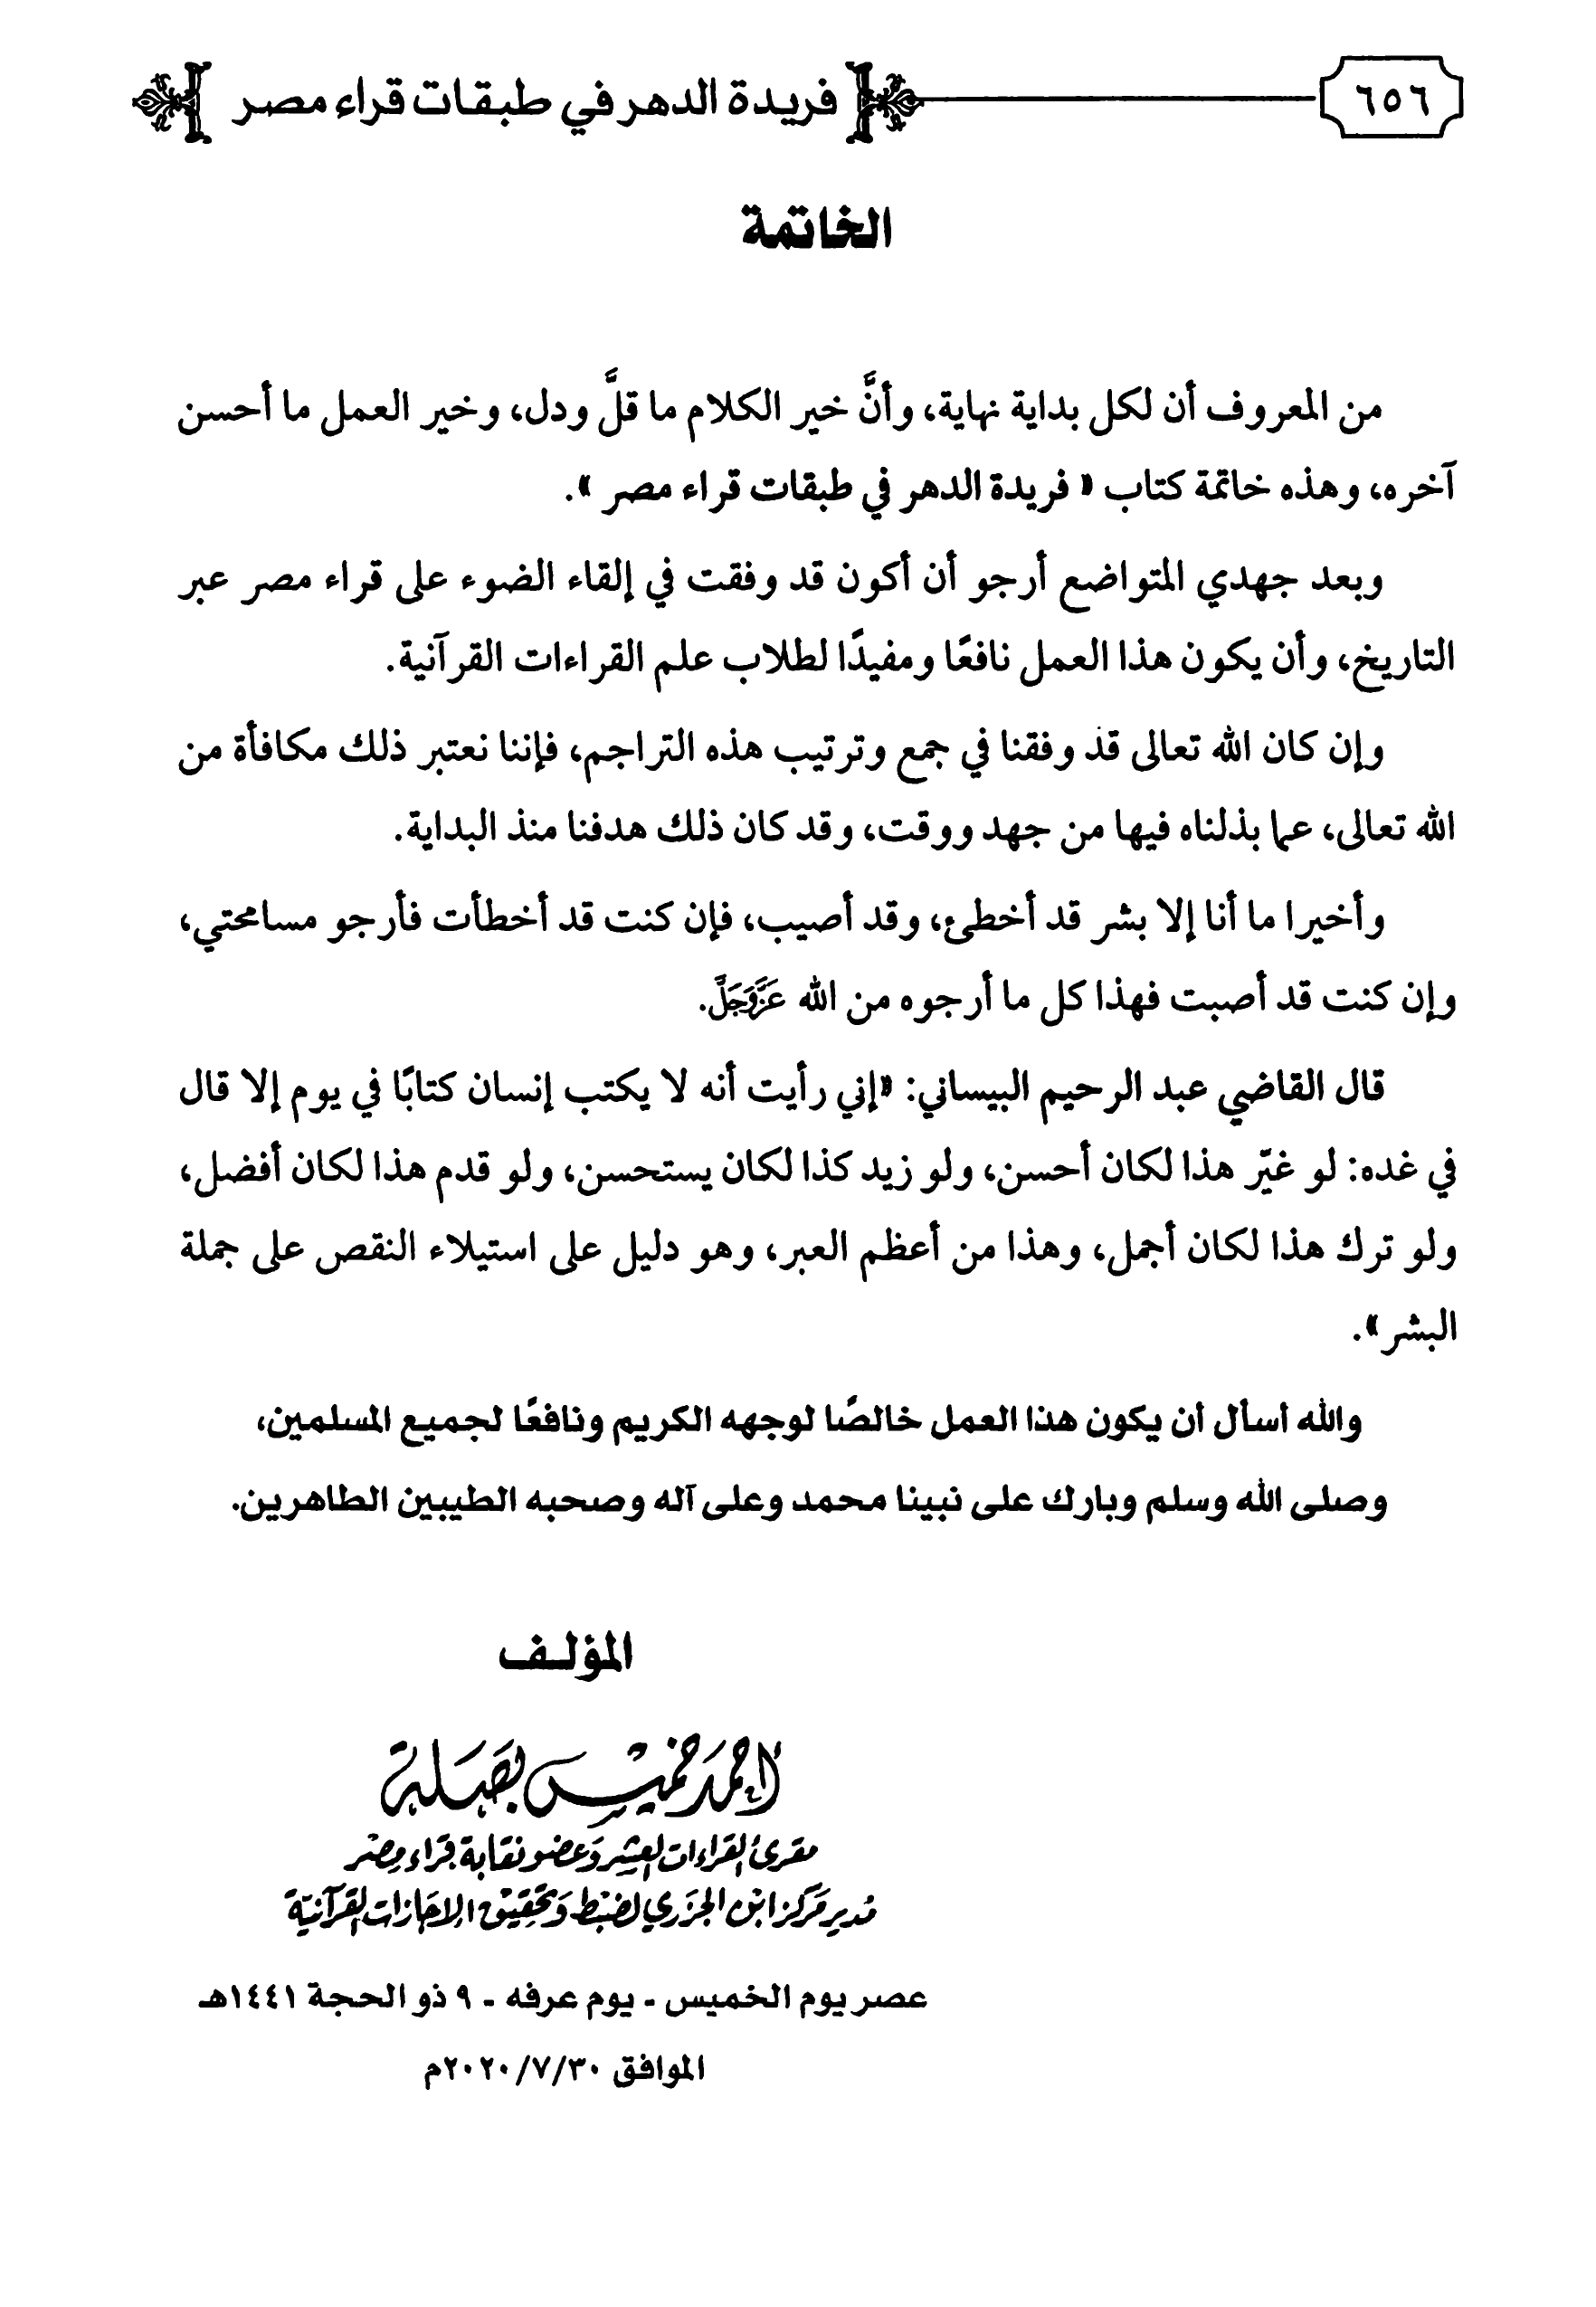 ٦٥٦
فريدة الدهر في طبقات قراء مصر
الخاتمة
من المعروف أن لكل بداية نهاية، وأنَّ خير الكلام ما قلَّ ودل، وخير العمل ما أحسن
آخره، وهذه خاتمة كتاب « فريدة الدهر في طبقات قراء مصر ».
وبعد جهدي المتواضع أرجو أن أكون قد وفقت في إلقاء الضوء على قراء مصر عبر
التاريخ، وأن يكون هذا العمل نافعًا ومفيدًا لطلاب علم القراءات القرآنية.
وإن كان الله تعالى قد وفقنا في جمع وترتيب هذه التراجم، فإننا نعتبر ذلك مكافأة من
الله تعالى، عما بذلناه فيها من جهد ووقت، وقد كان ذلك هدفنا منذ البداية.
وأخيرا ما أنا إلا بشر قد أخطئ، وقد أصيب، فإن كنت قد أخطأت فأرجو مسامحتي،
وإن كنت قد أصبت فهذا كل ما أرجوه من الله عَزَّوَجَلَّ.
قال القاضي عبد الرحيم البيساني: «إني رأيت أنه لا يكتب إنسان كتابًا في يوم إلا قال
في غده: لو غيّر هذا لكان أحسن، ولو زيد كذا لكان يستحسن، ولو قدم هذا لكان أفضل،
ولو ترك هذا لكان أجمل، وهذا من أعظم العبر، وهو دليل على استيلاء النقص على جملة
البشر».
والله أسأل أن يكون هذا العمل خالصًا لوجهه الكريم ونافعًا لجميع المسلمين،
وصلى الله وسلم وبارك على نبينا محمد وعلى آله وصحبه الطيبين الطاهرين.
المؤلف
أحمد خميس بصلة
مقرئ القراءات العشر وعضو نقابة قراء مصر
مدير مركز ابن الجزري لضبط وتحقيق الإجازات القرآنية
عصر يوم الخميس - يوم عرفه - ٩ ذو الحجة ١٤٤١هـ
الموافق ٢٠٢٠/٧/٣٠م